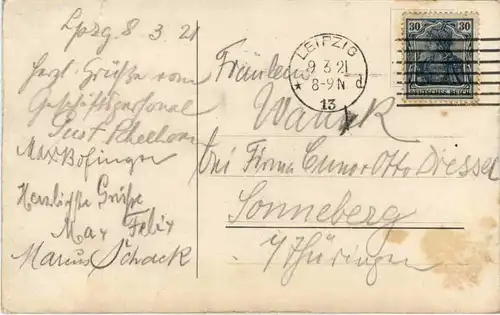 Lpzg 8 3. 21
Herzl. Grüße vom
Geschäftspersonal
Max Bofinger
Herzlichste Grüße
Max Felix
Marcus Schack
LEIPZIG
9 3 21
8-9 N
★ 13 d
30 30
DEUTSCHES REICH
Fräulein
bei Firma Cuno & Otto Dressel
Sonneberg
i/Thüringen